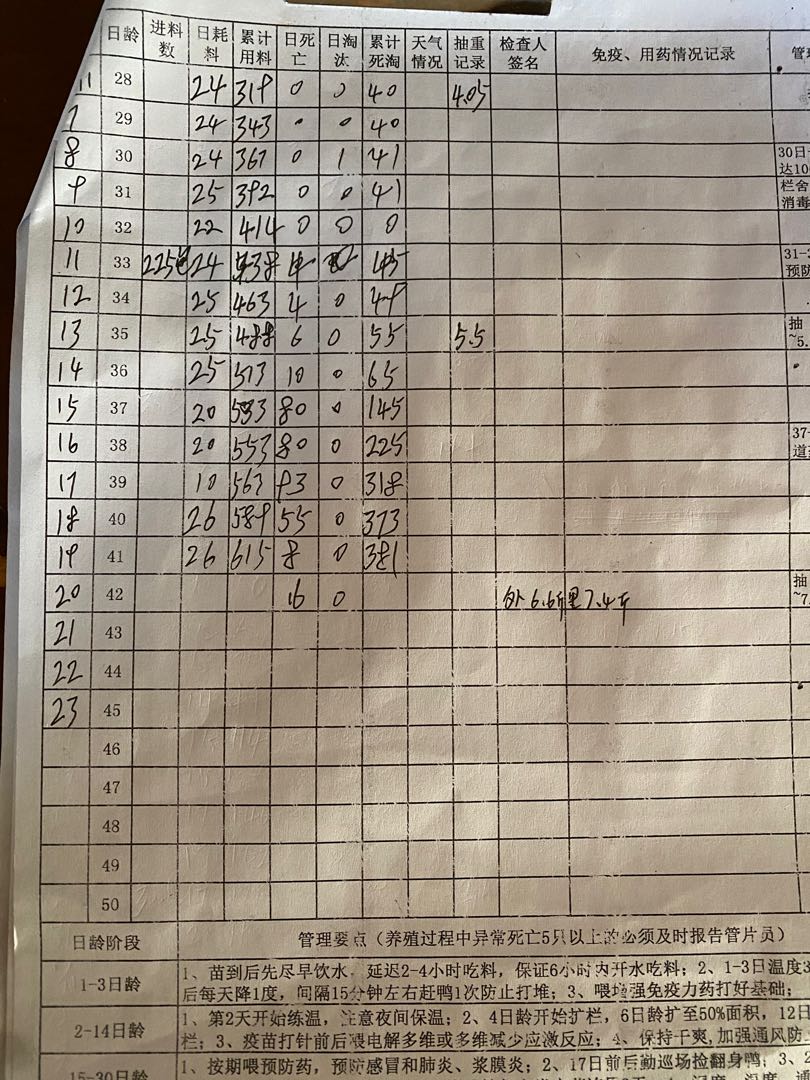 日龄 进料数 日耗料 累计用料 日死亡 日淘汰 累计死淘 天气情况 抽重记录 检查人签名 免疫、用药情况记录 管
28 24 319 0 0 40 4.05
7 29 24 343 0 0 40
8 30 24 367 0 1 41 30日
达10
9 31 25 392 0 0 41 栏舍
消毒
10 32 22 414 0 0 0
11 33 225 24 438 4 45 31-
预防
12 34 25 463 4 0 49
13 35 25 488 6 0 55 5.5 抽
~5.
14 36 25 513 10 0 65
15 37 20 533 80 0 145
16 38 20 553 80 0 225 37-
道
17 39 10 563 93 0 318
18 40 26 589 55 0 373
19 41 26 615 8 0 381
20 42 16 0 外6.6斤里7.4斤 抽
~7.
21 43
22 44
23 45
46
47
48
49
50
日龄阶段 管理要点（养殖过程中异常死亡5只以上的必须及时报告管片员）
1-3日龄 1、苗到后先尽早饮水，延迟2-4小时吃料，保证6小时内开水吃料；2、1-3日温度3
后每天降1度，间隔15分钟左右赶鸭1次防止打堆；3、喂增强免疫力药打好基础；
2-14日龄 1、第2天开始练温，注意夜间保温；2、4日龄开始扩栏，6日龄扩至50%面积，12日
栏；3、疫苗打针前后喂电解多维或多维减少应激反应；4、保持干爽,加强通风防
15-30日龄 1、按期喂预防药，预防感冒和肺炎、浆膜炎；2、17日前后勤巡场捡翻身鸭；3、2